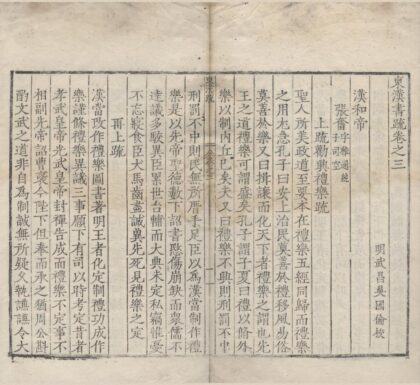 東漢書疏卷之三
明武昌吳國倫校
漢和帝
張奮字穉通純子司空
上疏勸興禮樂疏
聖人所美政道至要本在禮樂五經同歸而禮樂
之用尤急孔子曰安上治民莫善於禮移風易俗
莫善於樂又曰揖讓而化天下者禮樂之謂也先
王之道禮樂可謂盛矣孔子謂子夏曰禮以脩外
樂以制內丘已矣夫又曰禮樂不興則刑罰不中
刑罰不中則民無所厝手足臣以為漢當制作禮
樂是以先帝聖德數下詔書愍傷崩缺而衆儒不
達議多駮異臣累世台輔而大典未定私竊惟憂
不忘寢食臣犬馬齒盡誠冀先死見禮樂之定
再上疏
漢當改作禮樂圖書著明王者化定制禮功成作
樂謹條禮樂異議三事願下有司以時考定昔者
孝武皇帝光武皇帝封禪告成而禮樂不定事不
相副先帝詔曹襃今陛下但奉而承之猶周公斟
酌文武之道非自為制誠無所疑久執謙謙令大